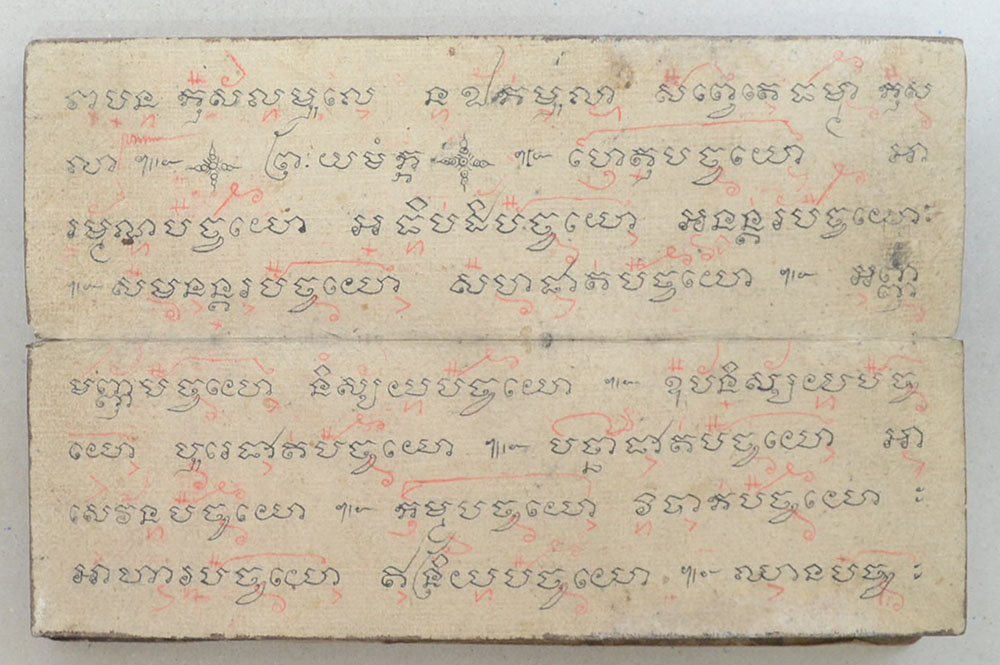 វាបន កុសលមូលេ ន ឯកមូលា សព្ពេតេ ធម្មា កុស
លា ៕ ព្រះយមំក្ក ៕ ហេតុបច្ចយោ អា
រម្មណបច្ចយោ អធិបតិបច្ចយោ អនន្តរបច្ចយោ ះ
៕ សមនន្តរបច្ចយោ សហជាតបច្ចយោ ៕ អញ្ញ
មញ្ញបច្ចយោ និស្សយបច្ចយោ ៕ ឧបនិស្សយបច្ច
យោ បុរេជាតបច្ចយោ ៕ បច្ឆាជាតបច្ចយោ អា
សេវនបច្ចយោ ៕ កម្មបច្ចយោ វិបាកបច្ចយោ ះ
អាហារបច្ចយោ ឥន្ទ្រិយបច្ចយោ ៕ ឈានបច្ច ះ